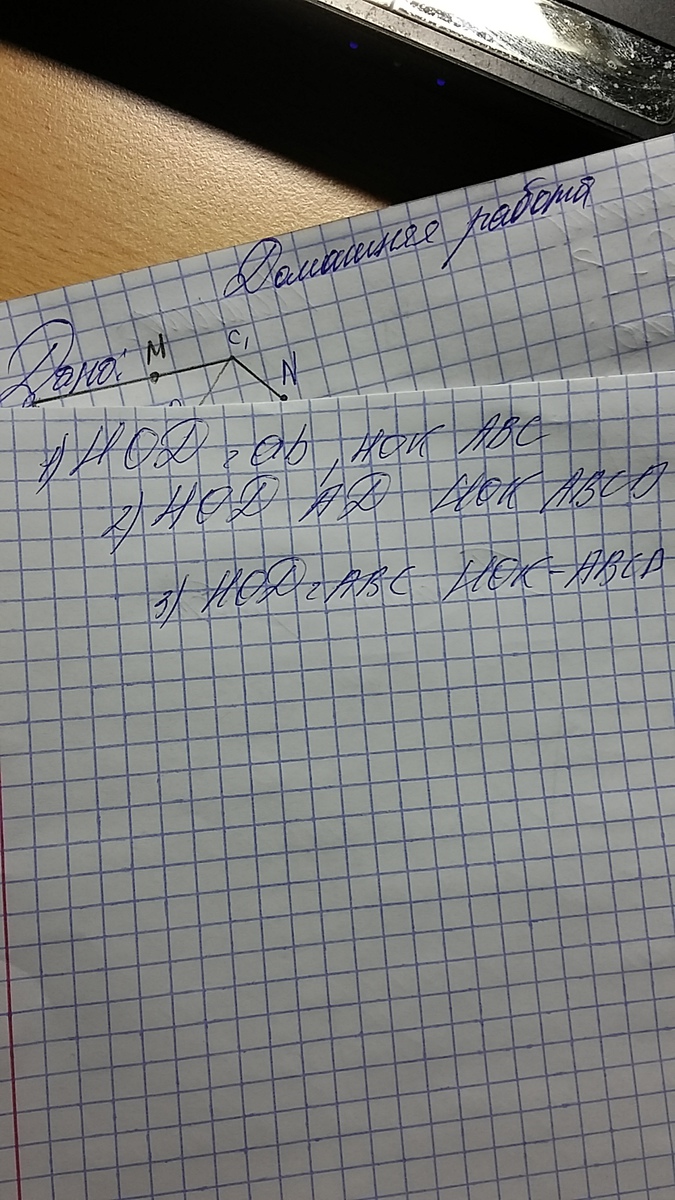 Домашняя работа
Дано:
M C₁ N
1) НОД = ab, НОК ABC
2) НОД AD НОК ABCD
3) НОД = ABC НОК - ABCD